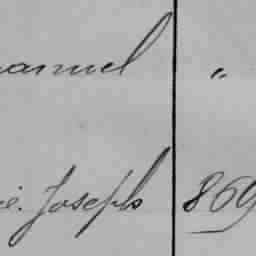 anuel "
ie. Joseph 869